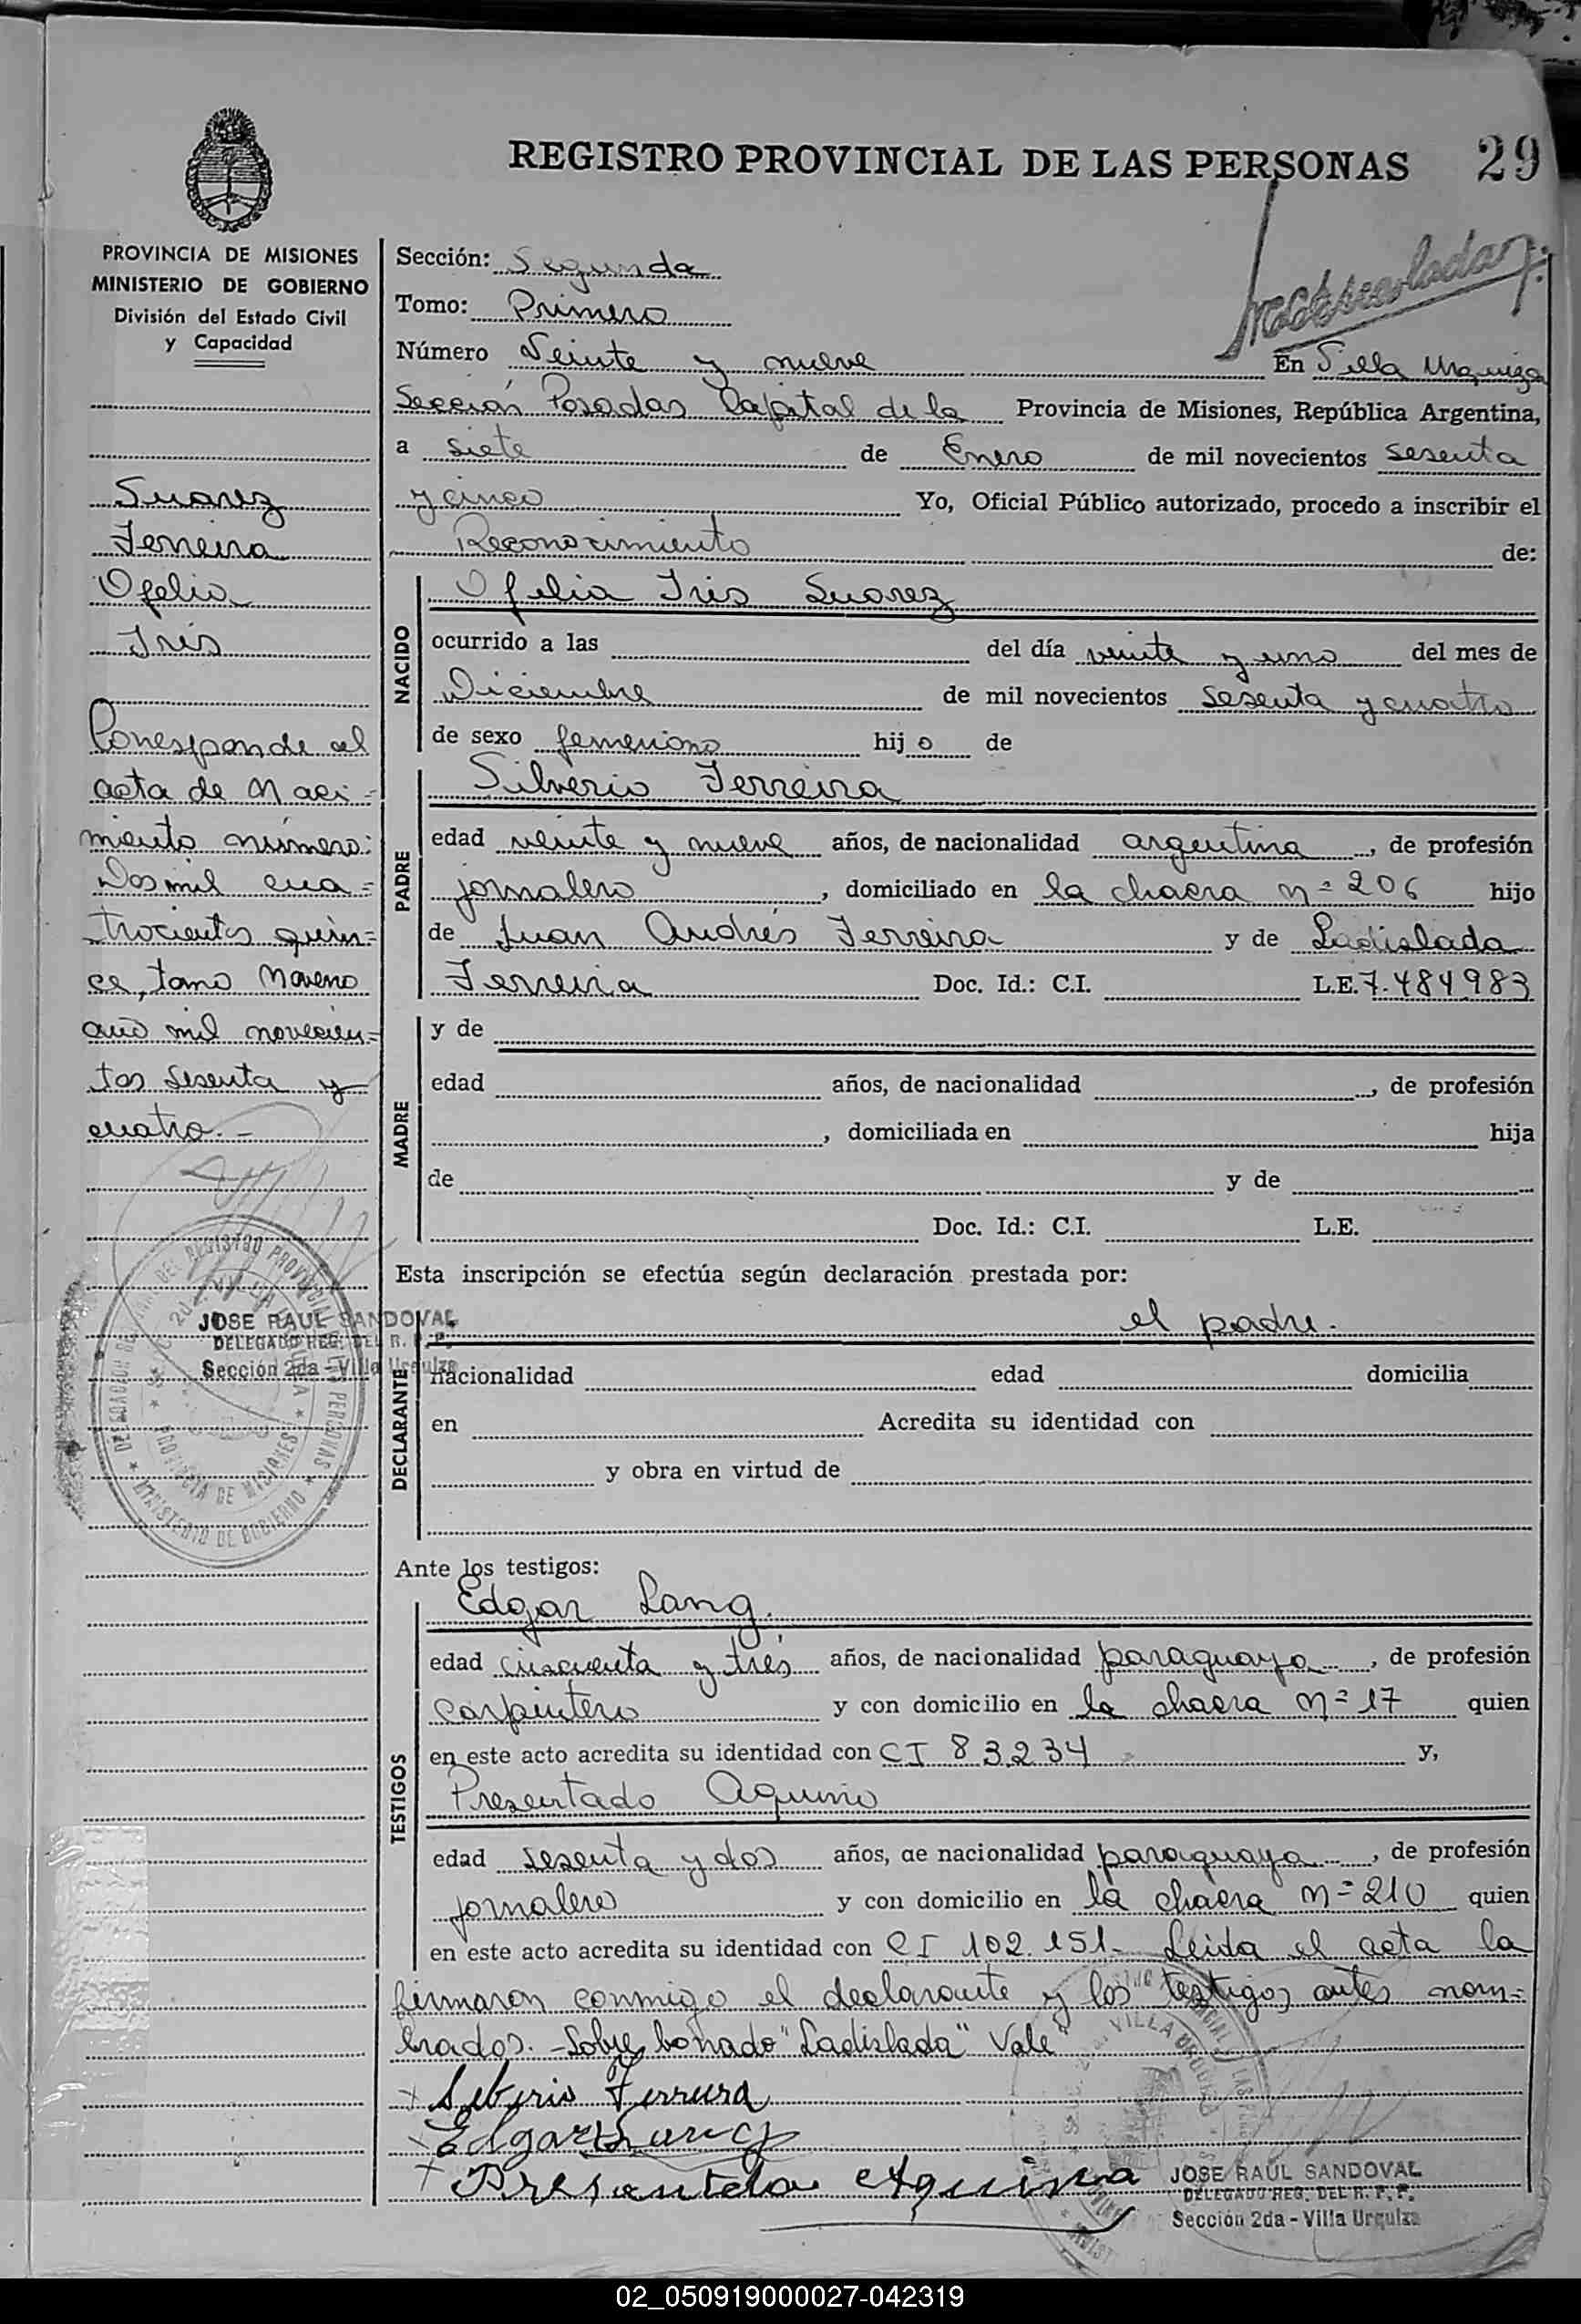 REGISTRO PROVINCIAL DE LAS PERSONAS 29
PROVINCIA DE MISIONES
MINISTERIO DE GOBIERNO
División del Estado Civil
y Capacidad
Suarez
Ferreira
Ofelia
Iris
Corresponde al
acta de Naci=
miento número:
Dos mil cua=
trocientos quin=
ce, tomo Noveno
año mil novecien=
tos sesenta y
cuatro.-
JOSE RAUL SANDOVAL
DELEGADO REG. DEL R. P. P.
Sección 2da - Villa Urquiza
DEL REGISTRO PROVINCIAL DE LAS PERSONAS
MINISTERIO DE GOBIERNO
PROVINCIA DE MISIONES
Sección: Segunda
Tomo: Primero
Número Veinte y nueve En Villa Urquiza
Sección Posadas Capital de la Provincia de Misiones, República Argentina,
a siete de Enero de mil novecientos sesenta
y cinco Yo, Oficial Público autorizado, procedo a inscribir el
Reconocimiento de:
NACIDO
Ofelia Iris Suarez
ocurrido a las del día veinte y uno del mes de
Diciembre de mil novecientos sesenta y cuatro
de sexo femenino hij o de
PADRE
Silverio Ferreira
edad veinte y nueve años, de nacionalidad argentina, de profesión
jornalero, domiciliado en la chacra nº 206 hijo
de Juan Andrés Ferreira y de Ladislada
Ferreira Doc. Id.: C.I. L.E. 7.484983
MADRE
y de
edad años, de nacionalidad , de profesión
, domiciliada en hija
de y de
Doc. Id.: C.I. L.E.
Esta inscripción se efectúa según declaración prestada por:
DECLARANTE
el padre.
nacionalidad edad domicilia
en Acredita su identidad con
y obra en virtud de
Ante los testigos:
TESTIGOS
Edgar Lang.
edad cincuenta y trés años, de nacionalidad paraguaya, de profesión
carpintero y con domicilio en la chacra nº 17 quien
en este acto acredita su identidad con CI 83234 y,
Presentado Aquino
edad sesenta y dos años, de nacionalidad paraguaya, de profesión
jornalero y con domicilio en la chacra nº 210 quien
en este acto acredita su identidad con CI 102.151.- Leida el acta la
firmaron conmigo el declarante y los testigos antes nom=
brados.- Sobre borrado "Ladislada" Vale"
Silverio Ferreira
Edgar Lang
Presentado Aquino
JOSE RAUL SANDOVAL
DELEGADO REG. DEL R. P. P.
Sección 2da - Villa Urquiza
02_050919000027-042319